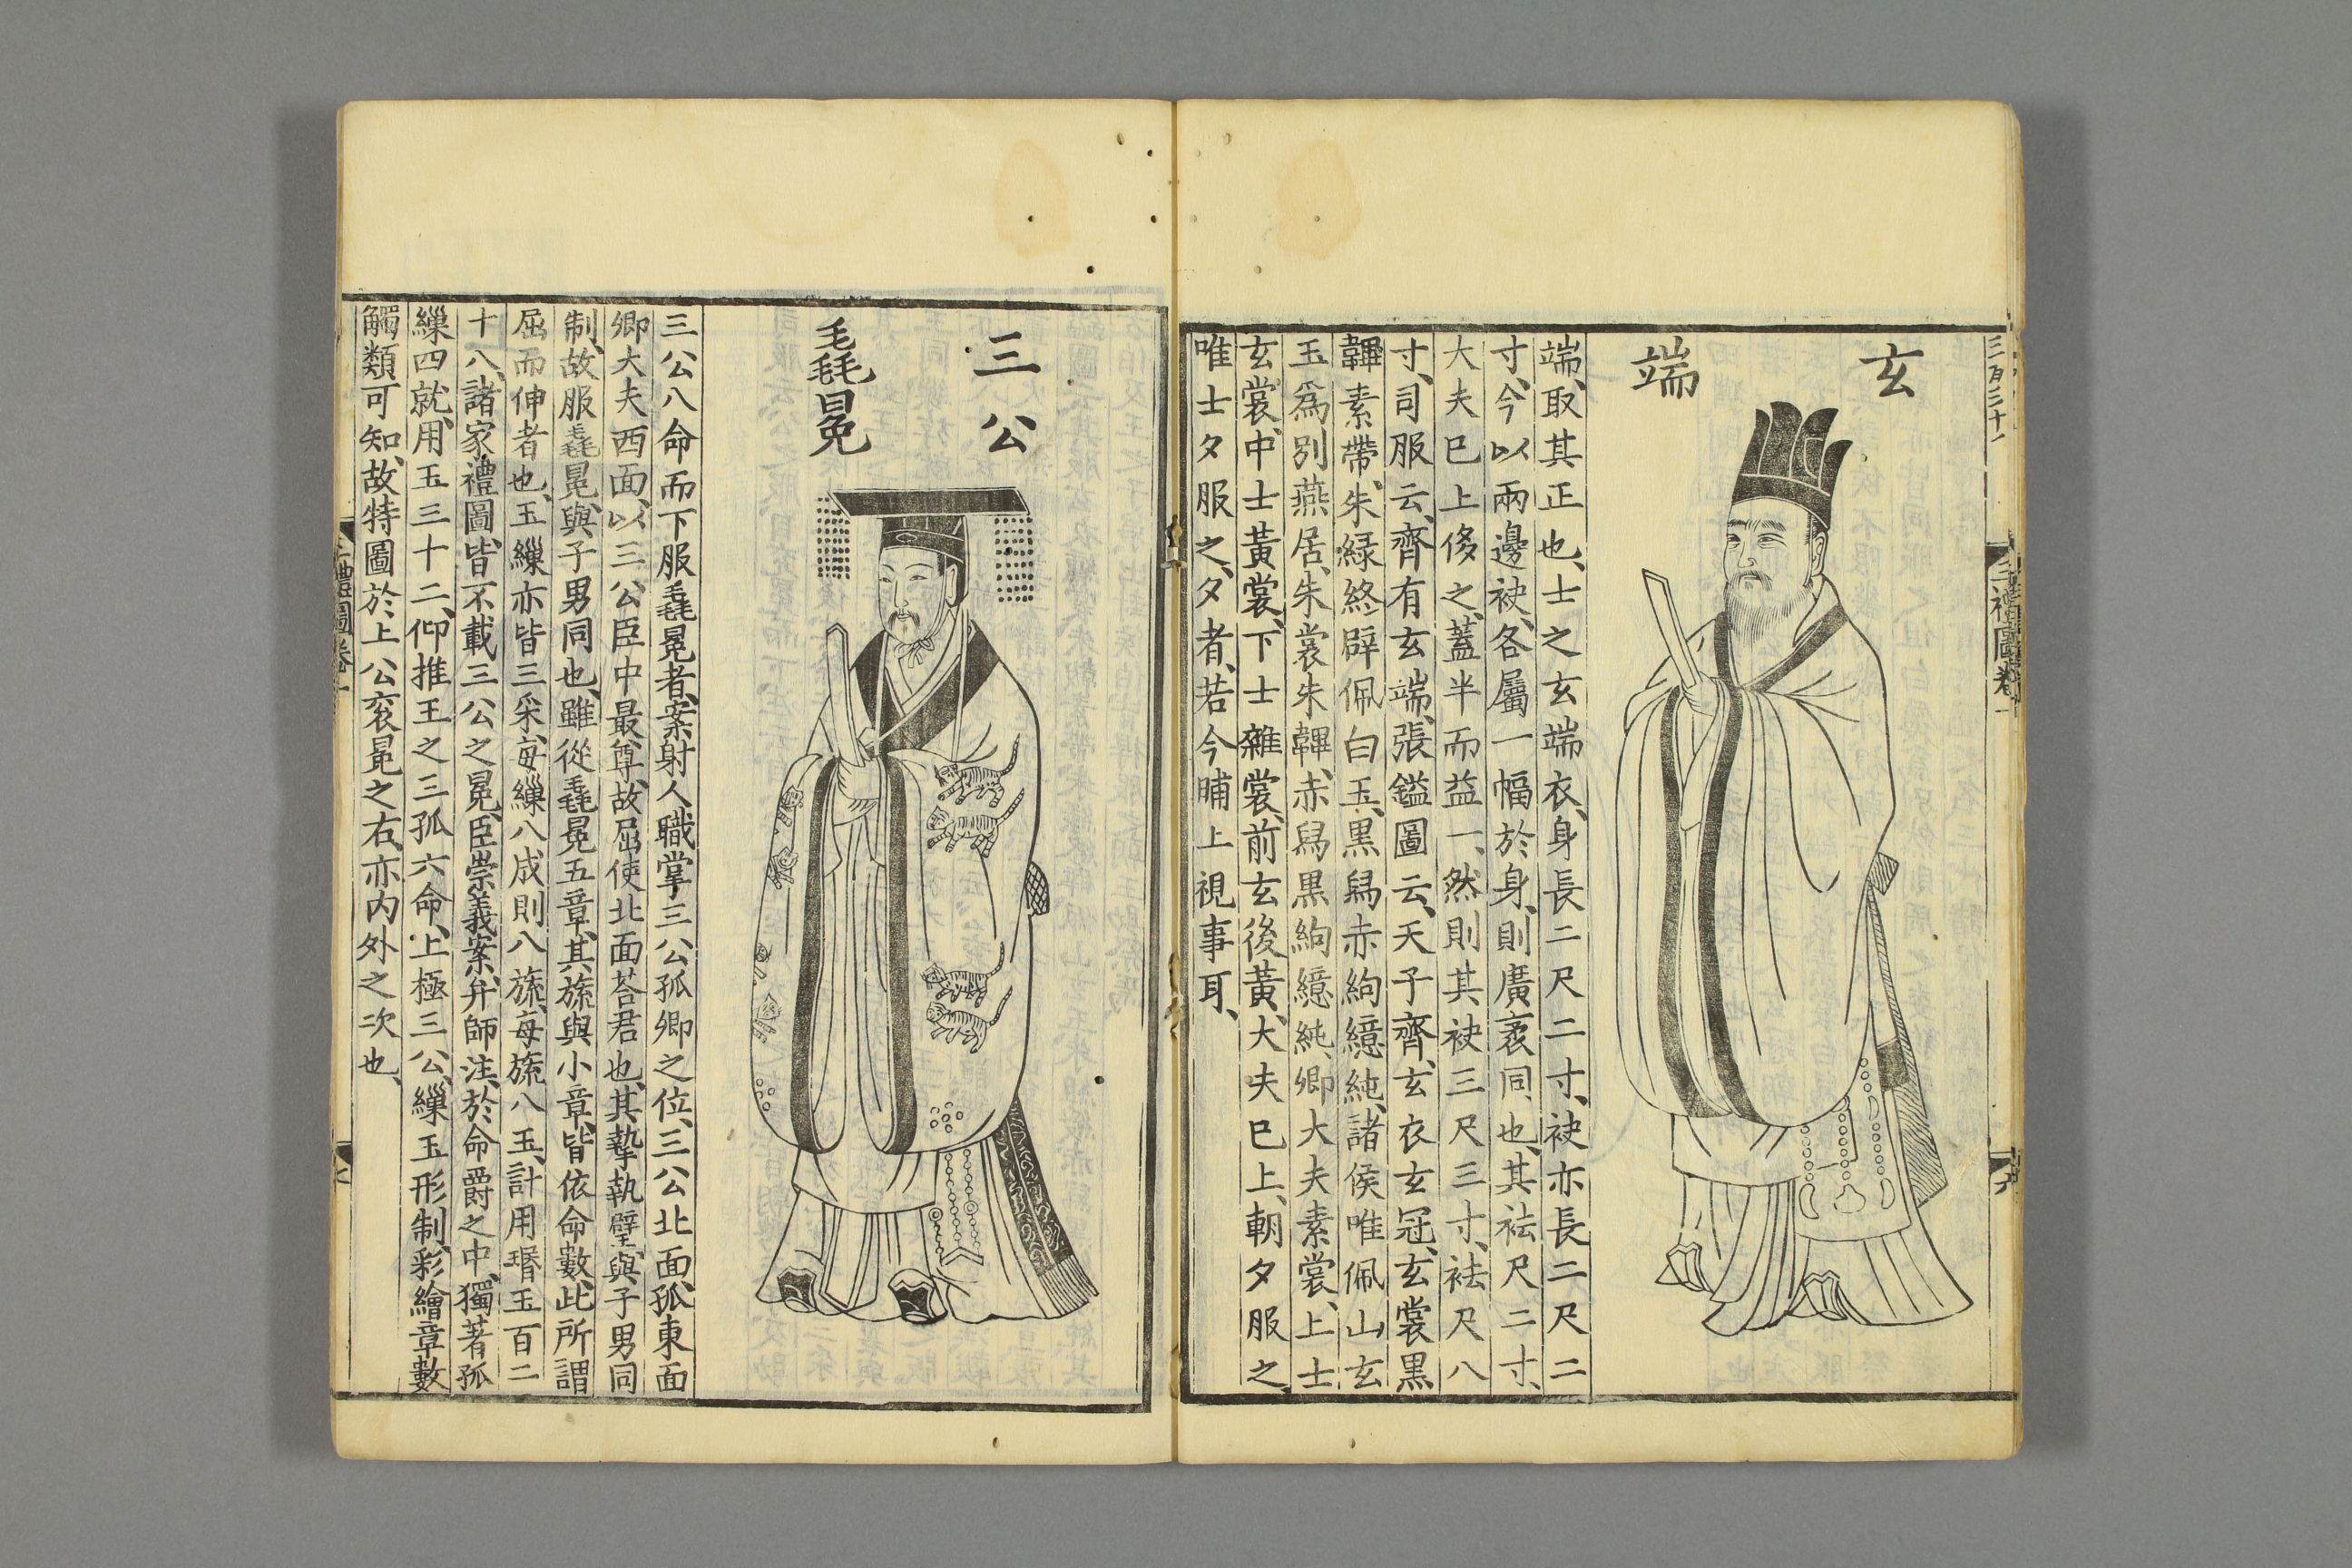 三百三十一
三禮圖卷一
六
玄端
端、取其正也、士之玄端衣、身長二尺二寸、袂亦長二尺二
寸、今以兩邊袂、各屬一幅於身、則廣袤同也、其袪尺二寸、
大夫已上侈之、蓋半而益一、然則其袂三尺三寸、袪尺八
寸、司服云、齊有玄端、張鎰圖云、天子齊、玄衣玄冠、玄裳黑
韠、素帶、朱緑終辟、佩白玉、黑舄赤絇繶純、諸侯唯佩山玄
玉爲別、燕居、朱裳朱韠、赤舄黑絇繶純、卿大夫素裳、上士
玄裳、中士黃裳、下士雜裳、前玄後黃、大夫已上、朝夕服之、
唯士夕服之、夕者、若今晡上視事耳、
三公
毳冕
三公八命而下服毳冕者、案射人職掌三公孤卿之位、三公北面、孤東面
卿大夫西面、以三公臣中最尊、故屈使北面荅君也、其摯執璧、與子男同
制、故服毳冕、與子男同也、雖從毳冕五章、其旒與小章、皆依命數、此所謂
屈而伸者也、玉繅亦皆三采、每繅八成則八旒、每旒八玉、計用瑉玉百二
十八、諸家禮圖、皆不載三公之冕、臣崇義案、弁師注、於命爵之中、獨著孤
繅四就、用玉三十二、仰推王之三孤六命、上極三公、繅玉形制、彩繪章數
觸類可知、故特圖於上公袞冕之右、亦内外之次也、
三禮圖卷一
七